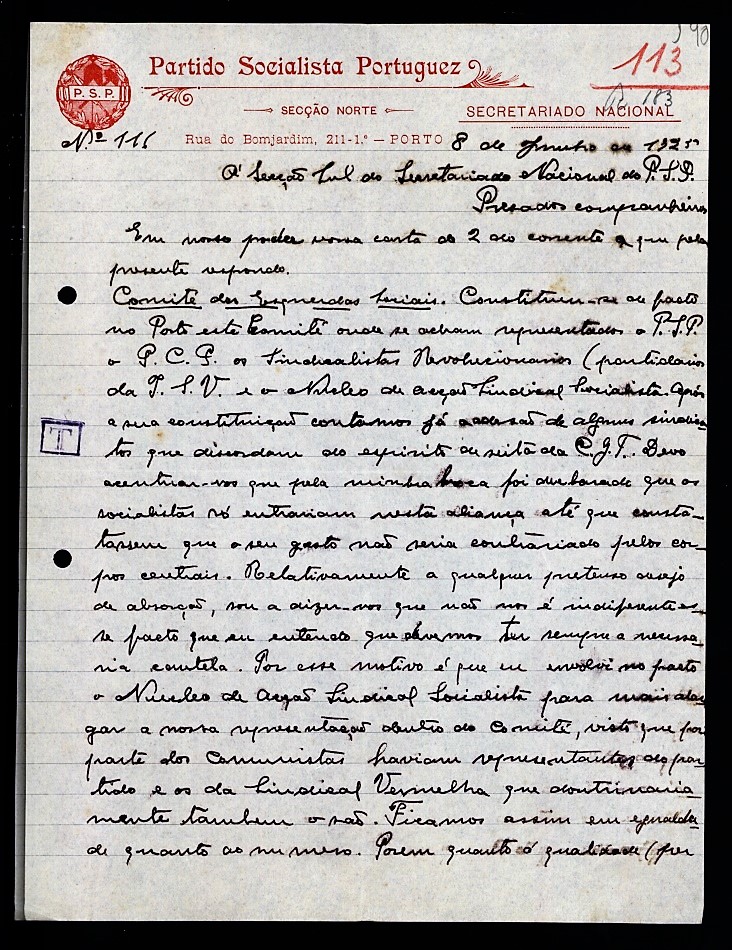 190
113
183
Partido Socialista Portuguez
P.S.P.
SECÇÃO NORTE
SECRETARIADO NACIONAL
Nº 116
Rua do Bomjardim, 211-1.º — PORTO 8 de Junho de 1925
Á Secção Sul do Secretariado Nacional do P.S.P.
Presados companheiros
Em nosso poder vossa carta de 2 do corrente a que pela
presente respondo.
Comité das Esquerdas Sociais. Constituiu-se de facto
no Porto este Comité onde se acham representados o P.S.P.
o P.C.P. os Sindicalistas Revolucionarios (partidarios
da I.S.V. e o Nucleo de acção Sindical Socialista. Após
a sua constituição contamos já a adesão de alguns sindica-
tos que discordam do espirito de seita da C.G.T. Devo
acentuar-vos que pela minha boca foi declarado que os
socialistas só entrariam nesta aliança até que consta-
tassem que o seu gesto não seria contrariado pelos cor-
pos centrais. Relativamente a qualquer pretenso desejo
de absorção, sou a dizer-vos que não nos é indiferente es-
se facto que eu entendo que devemos ter sempre a necessa-
ria cautela. Por esse motivo é que eu envolvi no pacto
o Nucleo de Acção Sindical Socialista para mais alar-
gar a nossa representação dentro do Comité, visto que por
parte dos Comunistas haviam representantes do par-
tido e os da Sindical Vermelha que doutrinaria-
mente tambem o são. Ficamos assim em egualda-
de quanto ao numero. Porem quanto á qualidade (per
T